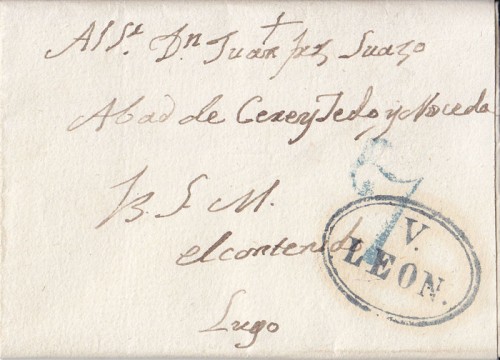 Al Sr. Dn Juan frz Suazo
Abad de Cerey Tedo, y Noceda
B. S. M.
el contenido
Lugo
7
V.
LEON.